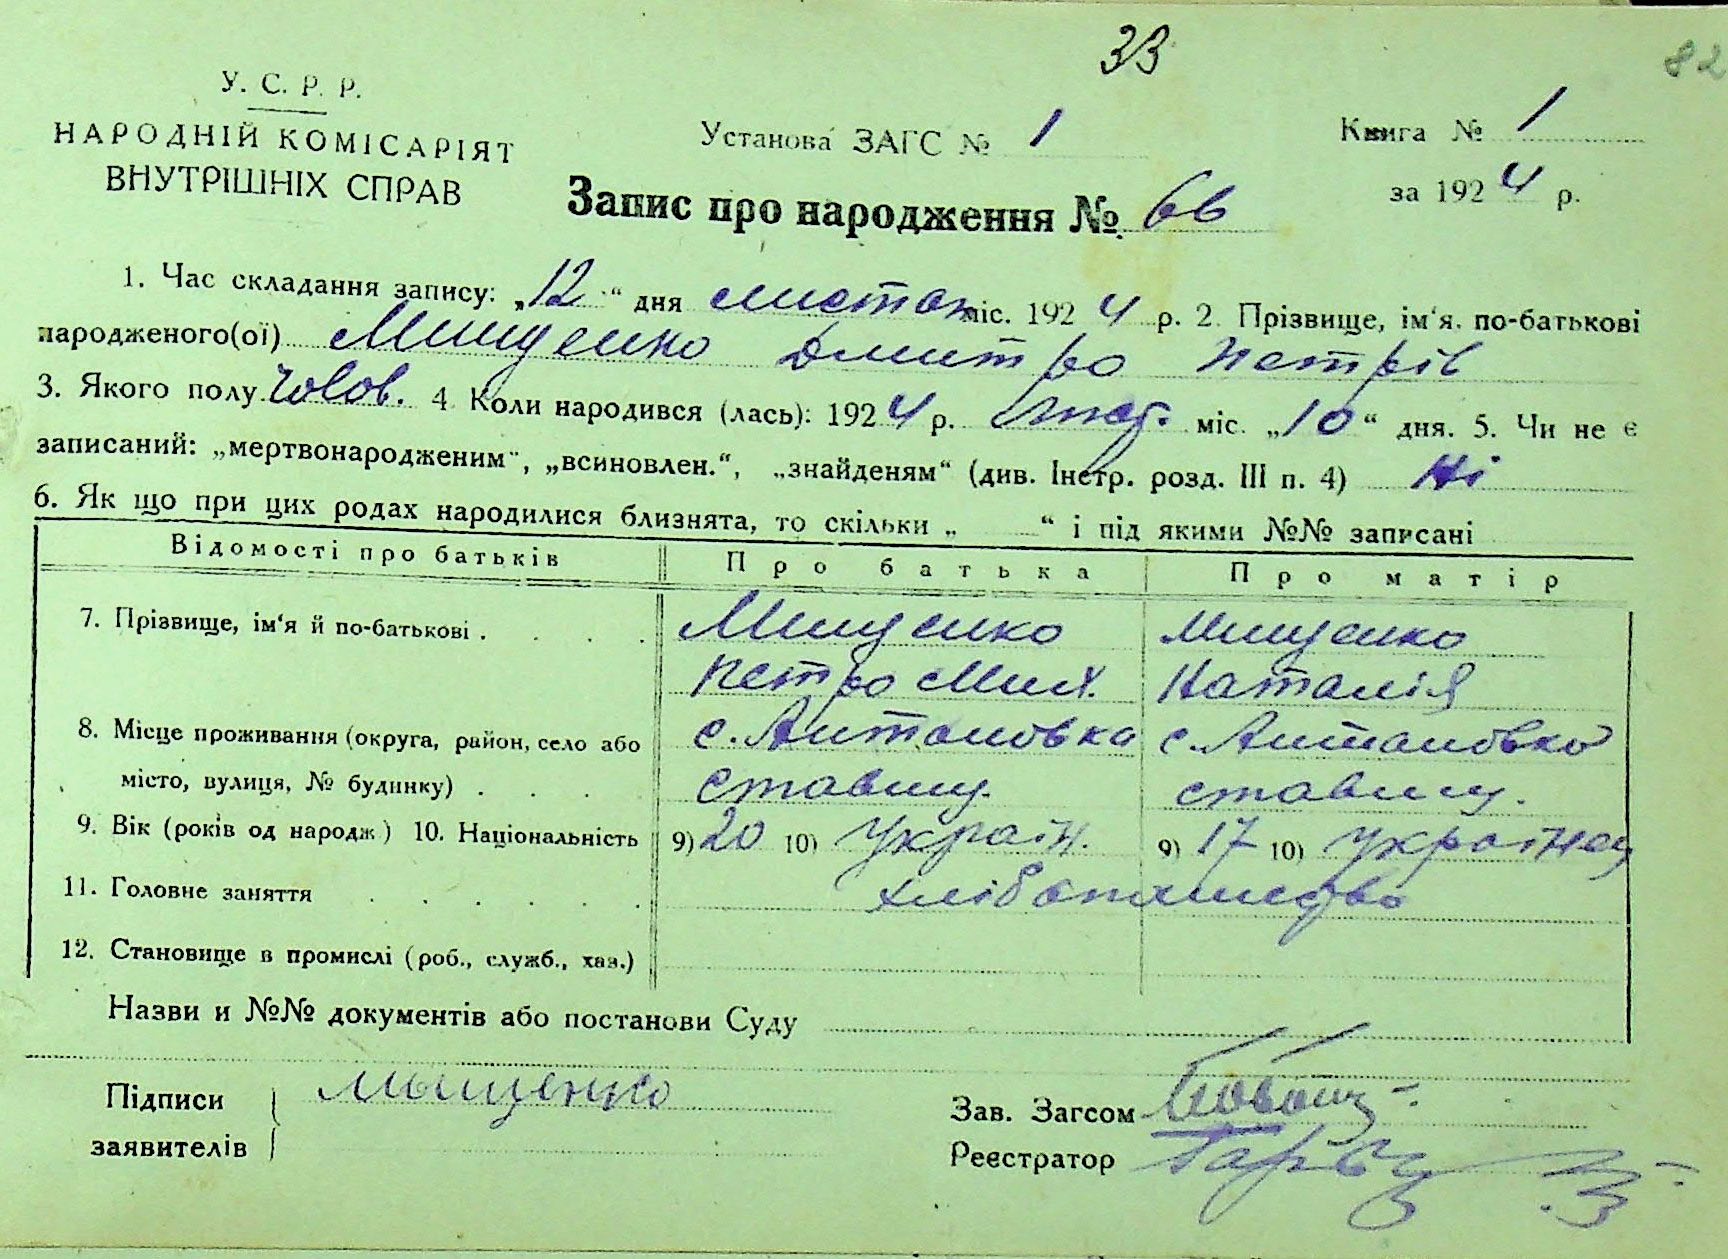 33
82
У. С. Р. Р.
НАРОДНІЙ КОМІСАРІЯТ
ВНУТРІШНІХ СПРАВ
Установа ЗАГС № 1
Книга № 1
за 1924 р.
Запис про народження № 66
1. Час складання запису: „12“ дня листоп міс. 1924 р. 2. Прізвище, ім'я, по-батькові
народженого(ої) Мищенко Дмитро Петрів
3. Якого полу Чолов. 4 Коли народився (лась): 1924 р. Лист. міс. „10“ дня. 5. Чи не є
записаний: „мертвонародженим“, „всиновлен.“, „знайденям“ (див. Інстр. розд. III п. 4) Ні
6. Як що при цих родах народилися близнята, то скільки „ “ і під якими №№ записані
Відомості про батьків Про батька Про матір
7. Прізвище, ім'я й по-батькові . . . . Мищенко Мищенко
Петро Мих. Наталія
8. Місце проживання (округа, район, село або с. Антоновка с. Антоновка
місто, вулиця, № будинку) . . . . Ставищ. Ставищ.
9. Вік (років од народж) 10. Національність 9) 20 10) Україн. 9) 17 10) Українец
11. Головне заняття . . . . . хліборобство
12. Становище в промислі (роб., служб., хаз.)
Назви и №№ документів або постанови Суду
Підписи Мыщенко
заявителів
Зав. Загсом
Реєстратор